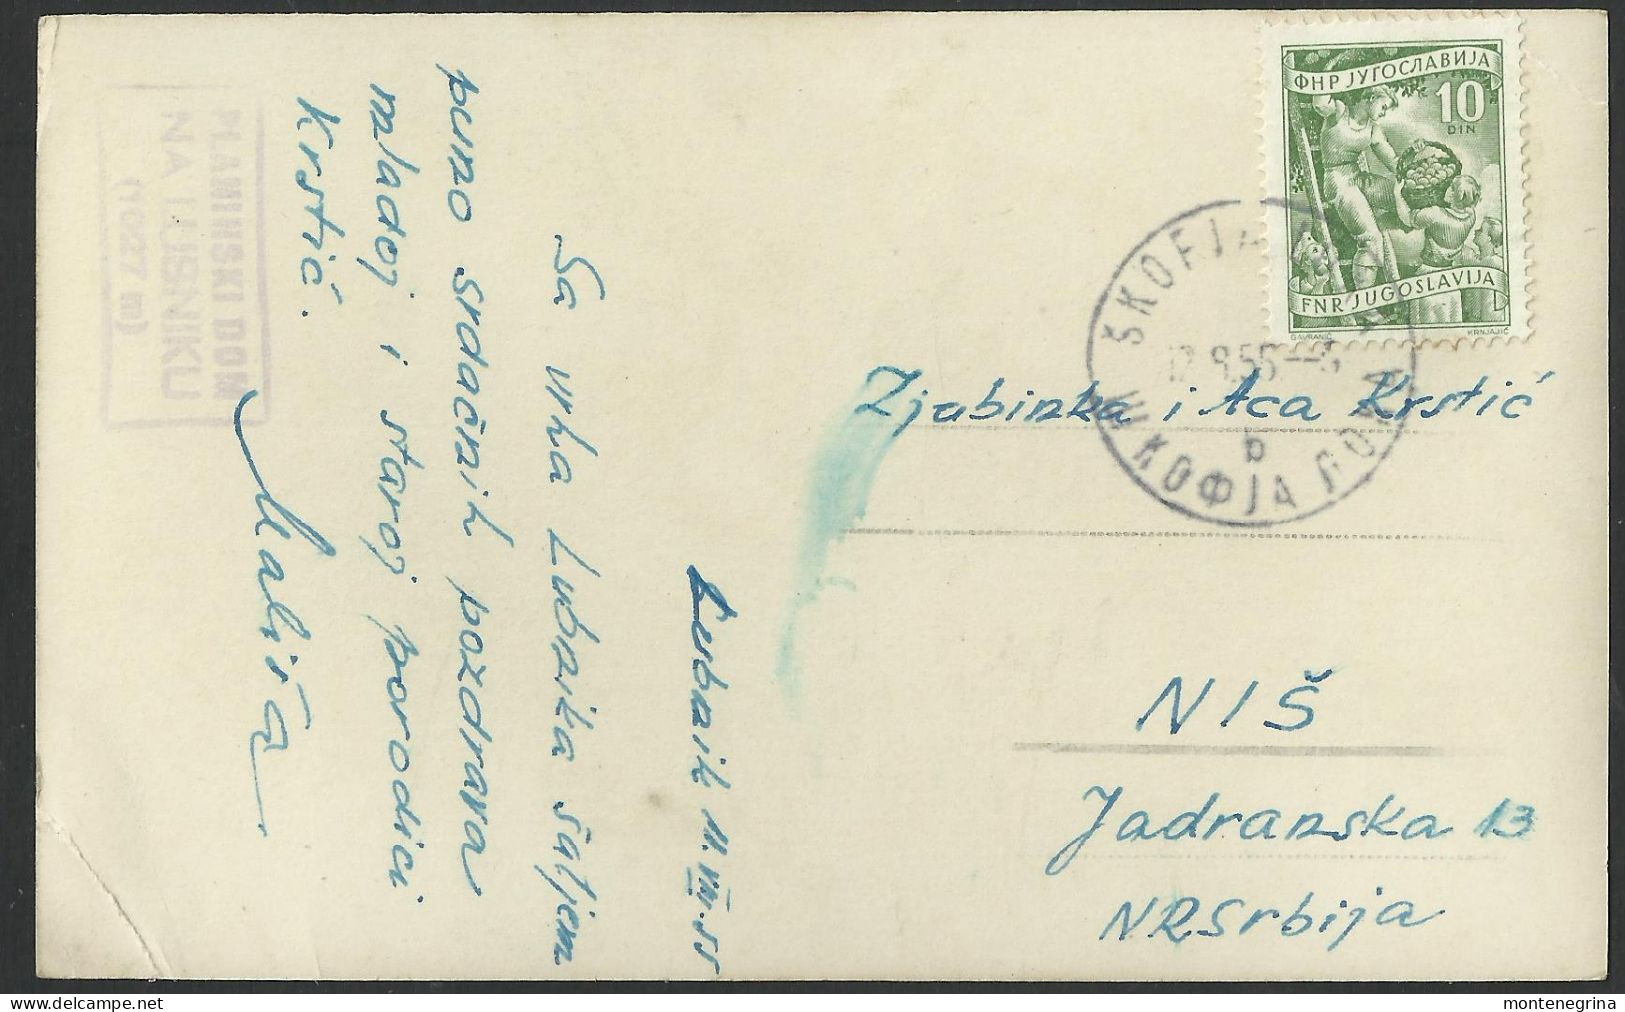 PLANINSKI DOM
NA LUBNIKU
(1027 m)
Lubnik 11.VIII.55
Sa vrha Lubnika šaljem
puno srdačnih pozdrava
mladoj i staroj porodici
Krstić.
Mališa
ФНР ЈУГОСЛАВИЈА
10
DIN
FNR JUGOSLAVIJA
GAVRANIĆ
KRNJAJIĆ
ŠKOFJA LOKA
12.8.55
b
ШКОФЈА ЛОКА
Ljubinka i Aca Krstić
NIŠ
Jadranska 13
NRSrbija
montenegrina